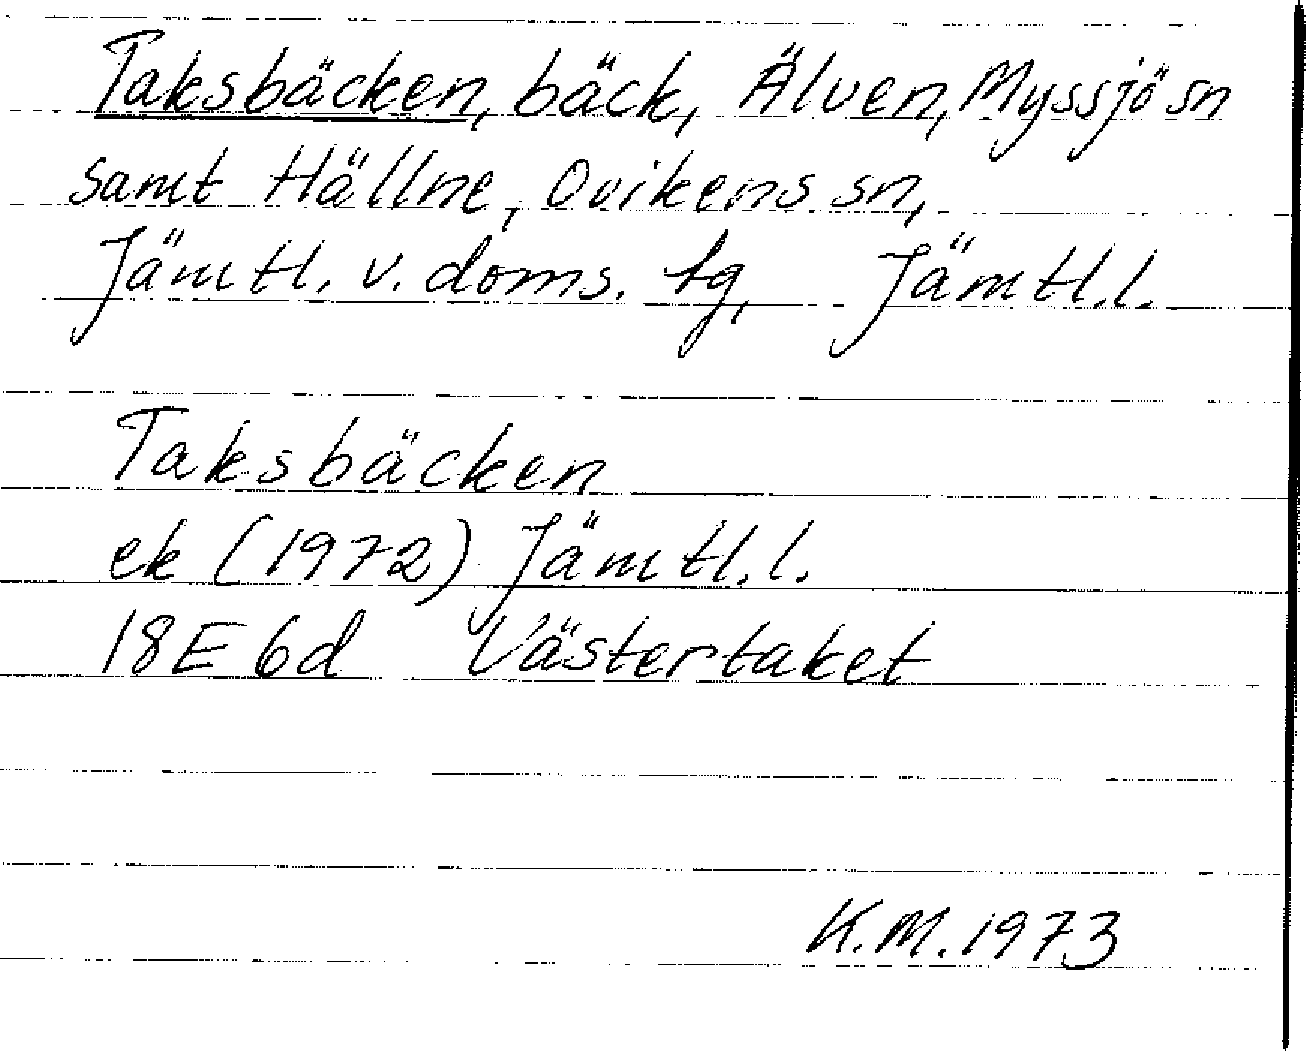 Taksbäcken, bäck, Älven, Myssjö sn
samt Hällne, Ovikens sn,
Jämtl. v. doms. tg, Jämtl.l.
Taksbäcken
ek (1972) Jämtl.l.
18E 6d Västertaket
K.M. 1973